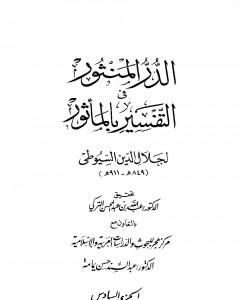 الدر المنثور
في
التفسير بالمأثور
لجلال الدين السيوطي
(٨٤٩هـ - ٩١١هـ)
تحقيق
الدكتور عبدالله بن عبدالمحسن التركي
بالتعاون مع
مركز هجر للبحوث والدراسات العربية والإسلامية
الدكتور عبدالسند حسن يمامة
الجزء السادس